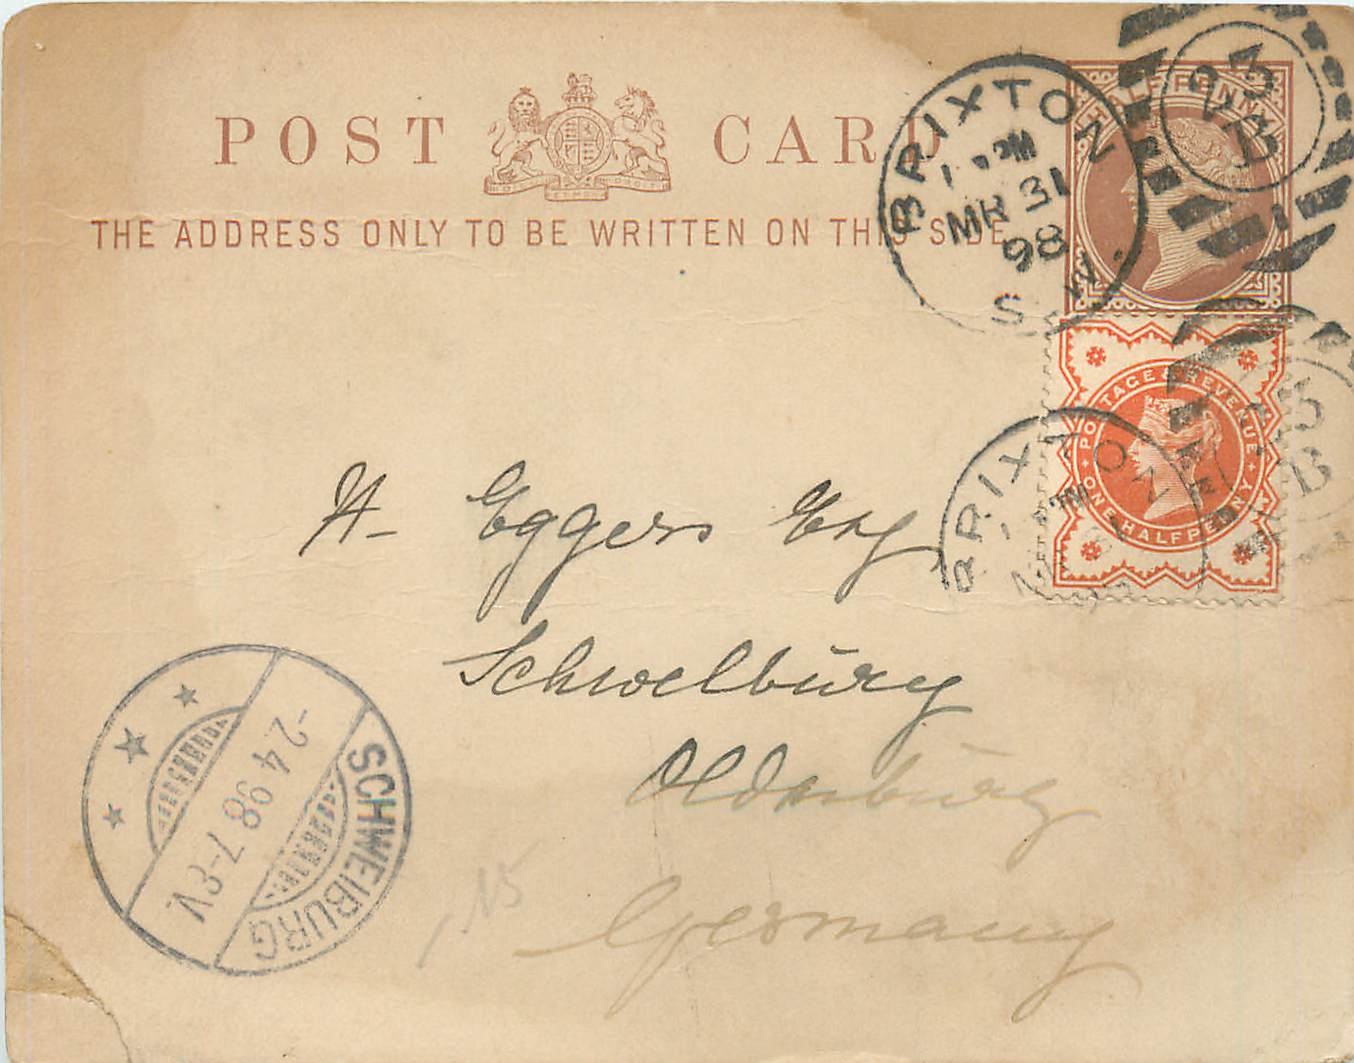 POST CARD
THE ADDRESS ONLY TO BE WRITTEN ON THIS SIDE
HALF PENNY
BRIXTON
PM
MR 31
98
S.W.
23
B
POSTAGE & REVENUE
ONE HALFPENNY
BRIXTON
23
B
H- Eggers Esq
Schwelbürg
Oldenbürg
Germany
SCHWEIBURG
-2 4 98 7-8V.
15